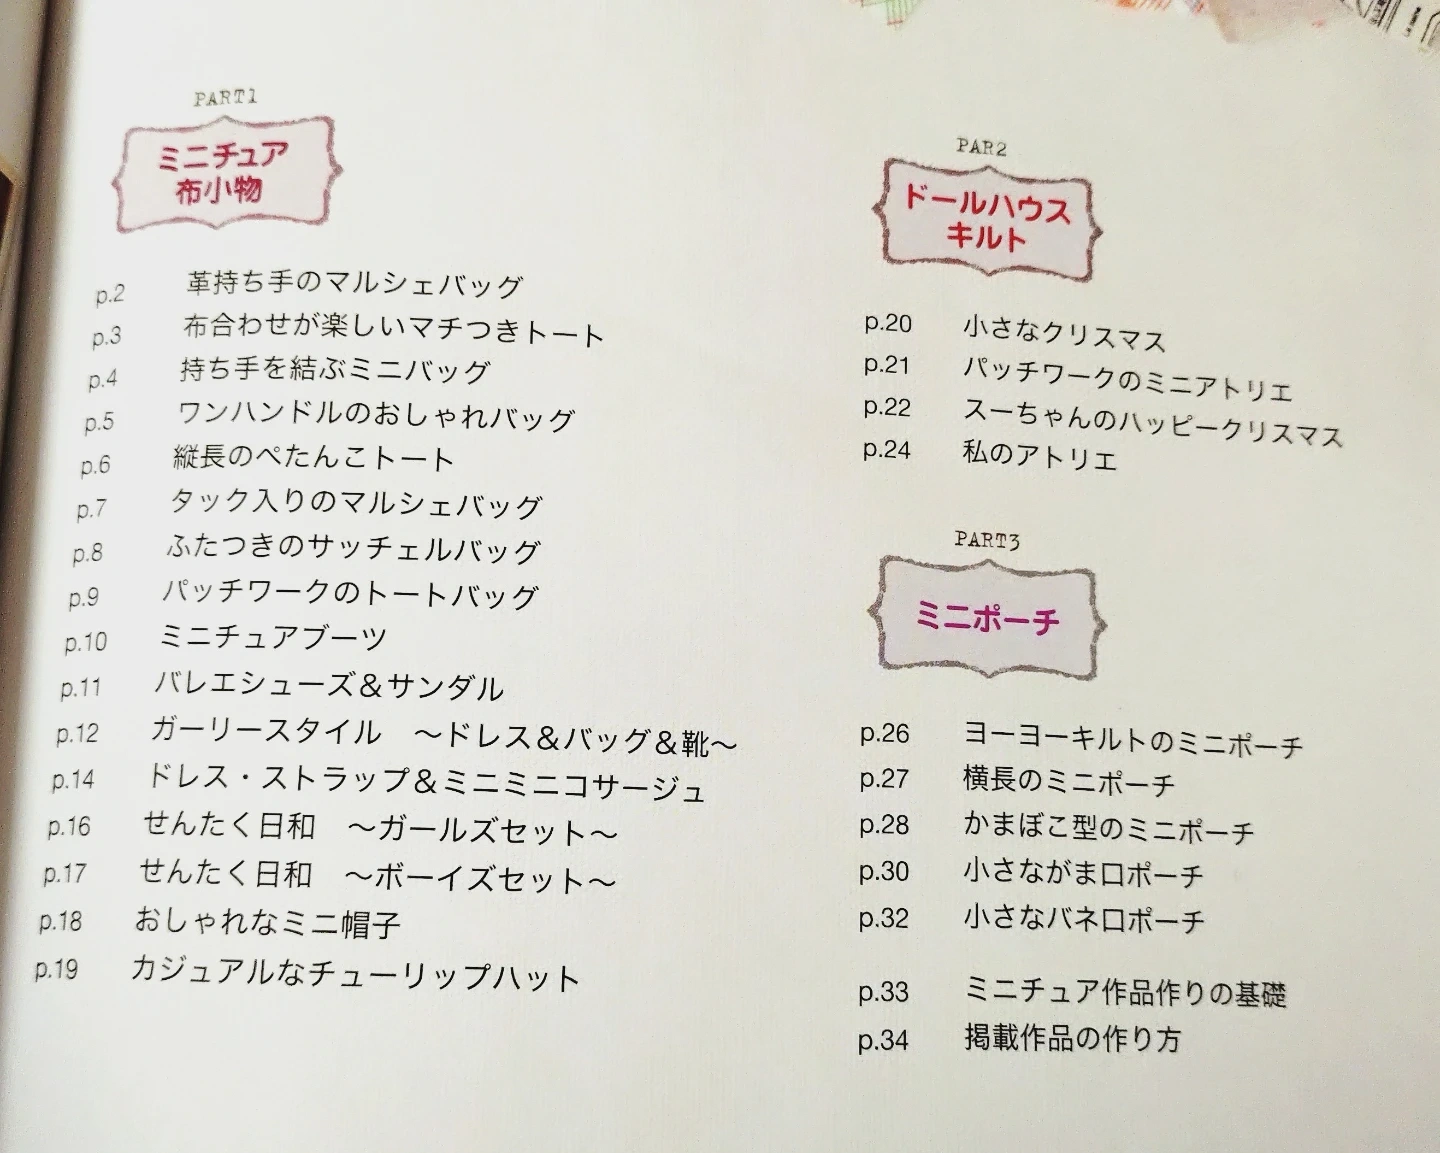 PART1
ミニチュア
布小物
p.2 革持ち手のマルシェバッグ
p.3 布合わせが楽しいマチつきトート
p.4 持ち手を結ぶミニバッグ
p.5 ワンハンドルのおしゃれバッグ
p.6 縦長のぺたんこトート
p.7 タック入りのマルシェバッグ
p.8 ふたつきのサッチェルバッグ
p.9 パッチワークのトートバッグ
p.10 ミニチュアブーツ
p.11 バレエシューズ＆サンダル
p.12 ガーリースタイル　〜ドレス＆バッグ＆靴〜
p.14 ドレス・ストラップ＆ミニミニコサージュ
p.16 せんたく日和　〜ガールズセット〜
p.17 せんたく日和　〜ボーイズセット〜
p.18 おしゃれなミニ帽子
p.19 カジュアルなチューリップハット
PAR2
ドールハウス
キルト
p.20 小さなクリスマス
p.21 パッチワークのミニアトリエ
p.22 スーちゃんのハッピークリスマス
p.24 私のアトリエ
PART3
ミニポーチ
p.26 ヨーヨーキルトのミニポーチ
p.27 横長のミニポーチ
p.28 かまぼこ型のミニポーチ
p.30 小さながま口ポーチ
p.32 小さなバネ口ポーチ
p.33 ミニチュア作品作りの基礎
p.34 掲載作品の作り方